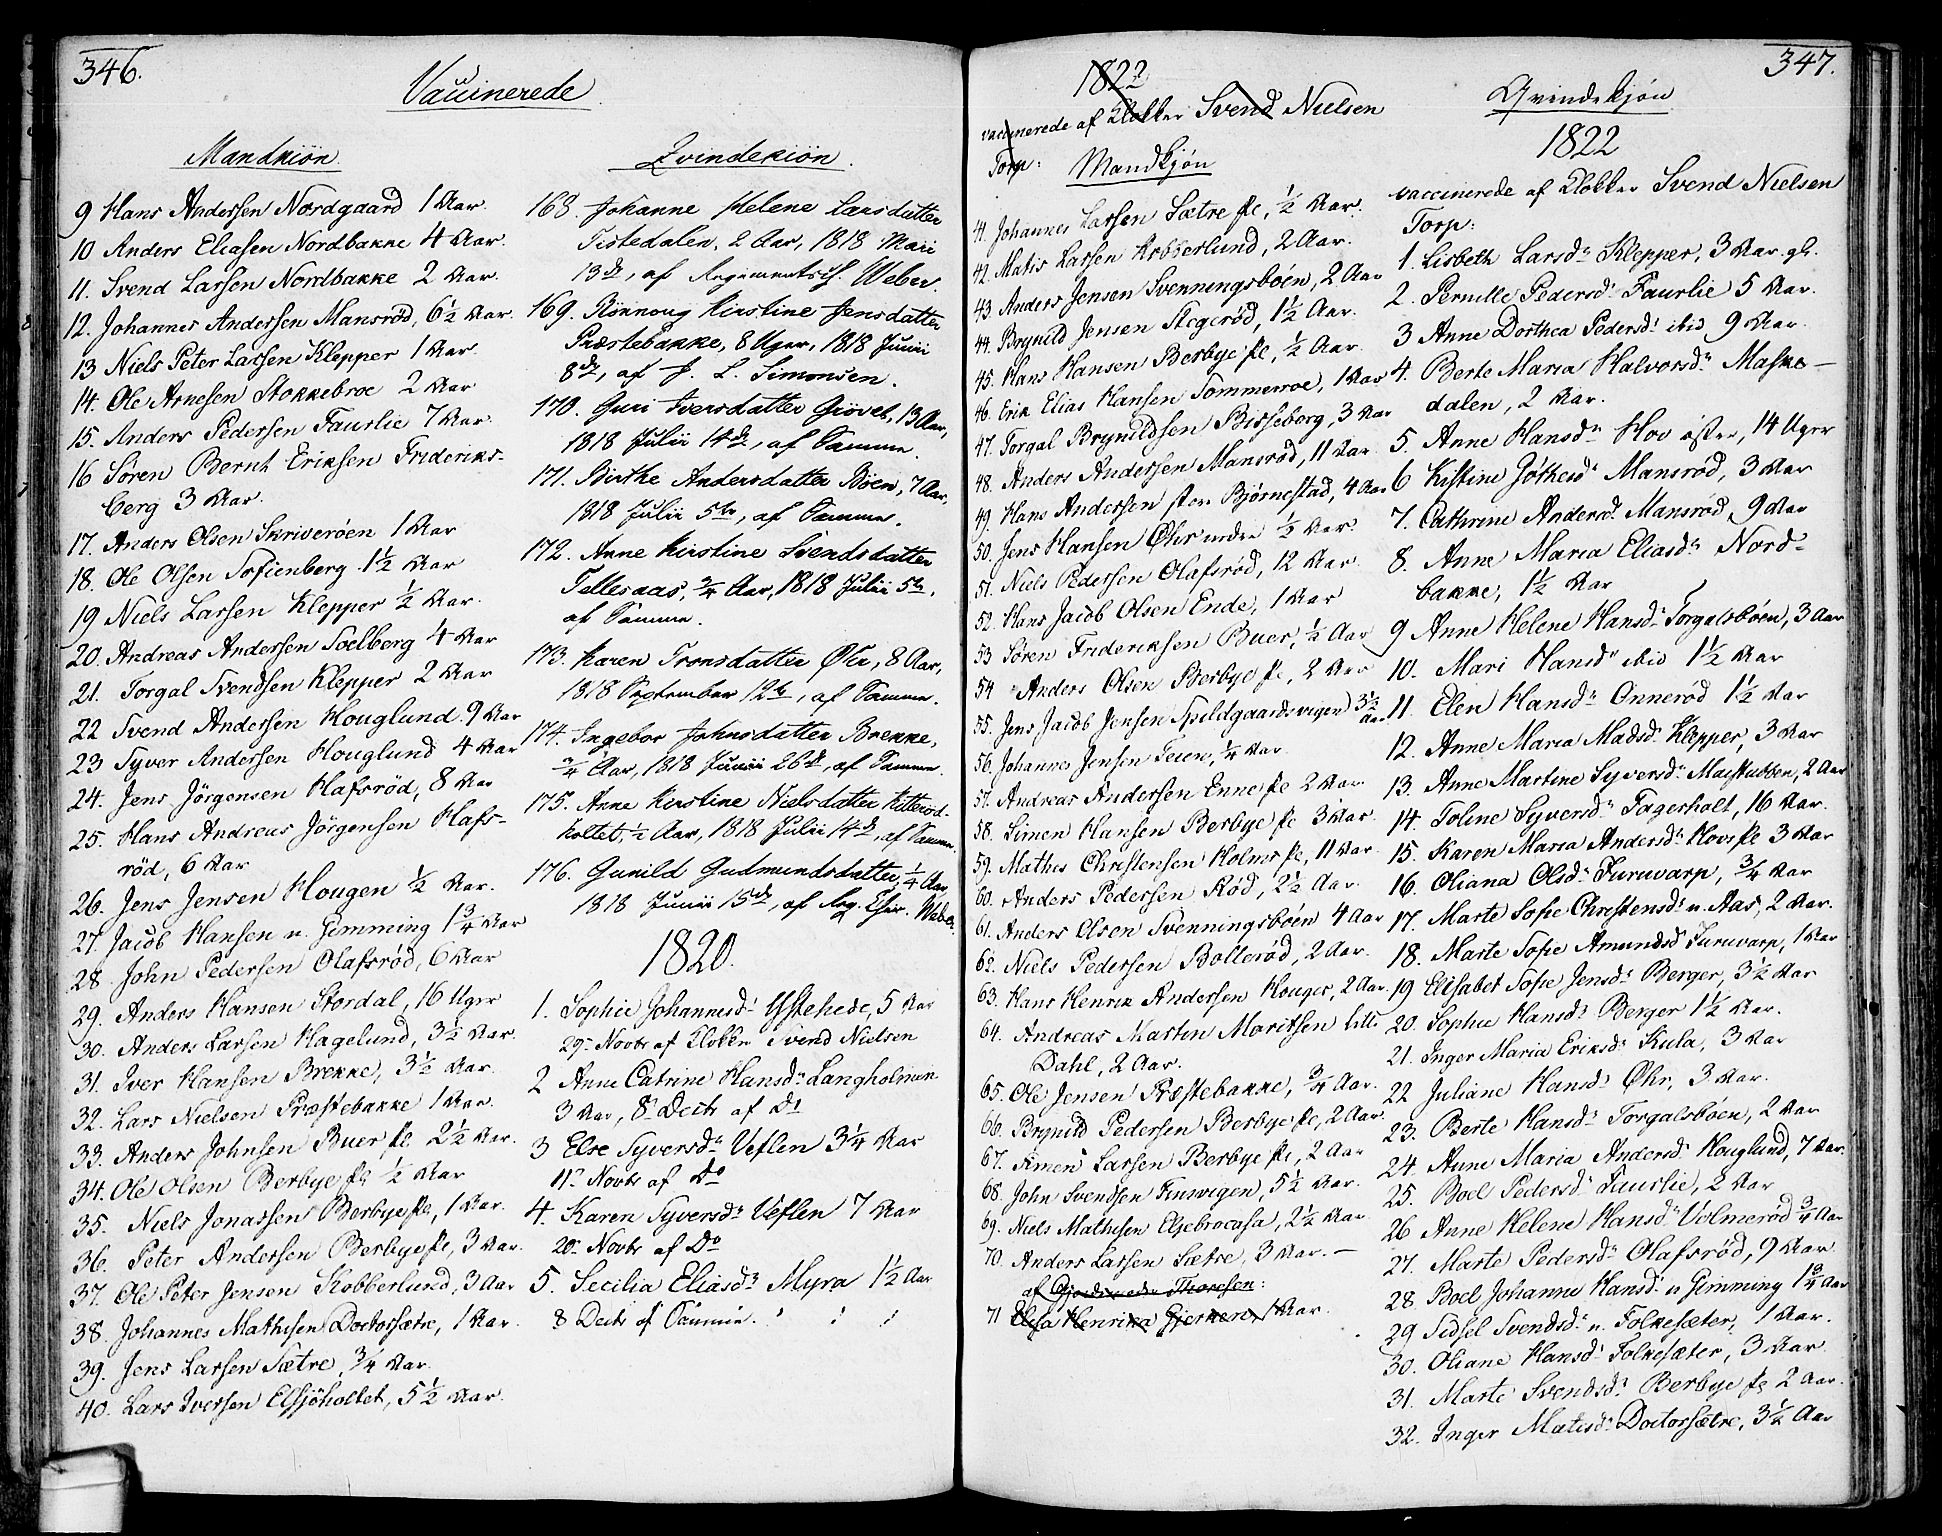 346.
Vaccinerede
Mandkiön.
9 Hans Andersen Nordgaard 1 Aar.
10 Anders Eliasen Nordbakke 4 Aar.
11. Svend Larsen Nordbakke 2 Aar.
12. Johannes Andersen Mansröd, 6½ Aar.
13 Niels Peter Larsen Klepper 1 Aar.
14. Ole Arnesen Stokkebroe 2 Aar
15. Anders Pedersen Faurlie 7 Aar.
16 Sören Bernt Eriksen Frideriks-
berg 3 Aar.
17. Anders Olsen Skriveröen 1 Aar
18. Ole Olsen Sofienberg 1½ Aar
19 Niels Larsen Klepper ½ Aar.
20. Andreas Andersen Soelberg 4 Aar
21. Torgal Svendsen Klepper 2 Aar
22 Svend Andersen Houglund 9 Aar
23 Syver Andersen Houglund 4 Aar
24. Jens Jörgensen Hafsröd, 8 Aar
25. Hans Andreas Jörgensen Hafs-
röd, 6 Aar
26. Jens Jensen Hougen ½ Aar.
27. Jacob Hansen n. Gimming 1¾ Aar
28. John Pedersen Olafsröd, 6 Aar
29. Anders Hansen Stordal, 16 Uger
30. Anders Larsen Hagelund, 3½ Aar.
31. Iver Hansen Brekke, 3½ Aar.
32. Lars Nielsen Præstebakke 1 Aar.
33. Anders Johnsen Buer pl. 2½ Aar.
34. Ole Olsen Berbye pl. ½ Aar
35. Niels Jonassen Berbye pl., 1 Aar.
36. Peter Andersen Berbye pl., 3 Aar.
37. Ole Peter Jensen Kobberlund, 3 Aar
38. Johannes Mathisen Doctorsætre, 1 Aar.
39. Jens Larsen Sætre, ¾ Aar.
40. Lars Iversen Elsjöholtet, 5½ Aar.
Qvindekiön.
168. Johanne Helene Larsdatter
Tistedalen, 2 Aar, 1818 Maii
13de, af Regimentsch. Weber.
169. Rönnoug Kirstine Jensdatter
Præstebakke, 8 Uger, 1818 Junii
8de, af J. L. Simonsen.
170. Guri Iversdatter Giövel, 13 Aar,
1818 Julii 14de, af Samme.
171. Birthe Andersdatter Böen, 7 Aar,
1818 Julii 5te, af Samme.
172. Anne Kirstine Svendsdatter
Tellesaas, ¾ Aar, 1818 Julii 5te,
af Samme.
173. Karen Tronsdatter Öhr, 8 Aar,
1818 September 12te, af Samme.
174. Ingebor Johnsdatter Brekke,
¾ Aar, 1818 Junii 26de, af Samme.
175. Anne Kirstine Nielsdatter Kitteröd-
holtet, ½ Aar, 1818 Julii 14de, af Samme.
176. Gunild Gudmundsdatter, ¼ Aar,
1818 Junii 15de, af Reg. Chir. Weber.
1820.
1. Sophie Johannesd. Ystehede, 5 Aar
29. Novbr af Klokker Svend Nielsen
2 Anne Catrine Hansd. Langholmen
3 Aar, 8 Decbr af Do
3 Else Syversdr. Veflen 3¼ Aar
11. Novbr af Do
4. Karen Syversdr. Veflen 7 Aar
20. Novbr af Do
5. Secilia Eliasdr. Myra 1½ Aar
8 Decbr af Samme.
347.
1822
vaccinerede af Klokker Svend Nielsen
Torp:
Mandkjön
41. Johannes Larsen Sætre pl., ½ Aar.
42. Matis Larsen Kobberlund, 2 Aar.
43. Anders Jensen Svenningsböen, 2 Aar
44. Brynild Jensen Stegeröd, 1½ Aar.
45. Hans Hansen Berbye pl., ½ Aar.
46. Erik Elias Hansen Tommeroe, 1 Aar
47. Torgal Brynildsen Bisseborg, 3 Aar
48. Anders Andersen Mansröd, 11 Aar
49. Hans Andersen Björnestad, 4 Aar
50. Jens Hansen Öhr nedre ½ Aar.
51. Niels Pedersen Olafsröd, 12 Aar.
52. Hans Jacob Olsen Ende, 1 Aar
53 Sören Frideriksen Buer, ½ Aar
54 Anders Olsen Berbye pl., 2 Aar
55. Jens Jacob Jensen Spildgaardsvigen, 3½ Aar
56. Johannes Jensen Feien, ¼ Aar
57. Andreas Andersen Enne pl. 2 Aar.
58. Simen Hansen Berbye pl. 3 Aar.
59. Mathis Christensen Holms pl., 11 Aar.
60. Anders Pedersen Röd, 2½ Aar.
61. Anders Olsen Svenningsböen 4 Aar
62. Niels Pedersen Bolleröd, 2 Aar.
63. Hans Henrik Andersen Houger, 2 Aar.
64. Andreas Marten Moritsen lille
Dahl, 2 Aar.
65. Ole Jensen Præstebakke, ¾ Aar.
66. Brynild Pedersen Berbye pl., 2 Aar.
67. Simen Larsen Berbye pl., 2 Aar
68. John Svendsen Finsvigen, 5½ Aar.
69. Niels Mathisen Elgebrocasa, 2½ Aar.
70. Anders Larsen Sætre, 3 Aar. —
af Thoresen:
71 Elisa Henrika 1 Aar.
Qvindekjön
1822
vaccinerede af Klokker Svend Nielsen
Torp:
1. Lisbeth Larsdr. Klepper, 3 Aar gl.
2. Pernille Pedersd. Faurlie 5 Aar.
3 Anne Dorthea Pedersd. ibid 9 Aar.
4. Berte Maria Halvorsdr. Maske-
dalen, 2 Aar.
5. Anne Hansdr. Hov öster, 14 Uger
6 Kistine Göthesdr. Mansröd, 3 Aar
7. Cathrine Andersd. Mansröd, 9 Aar
8. Anne Maria Eliasdr. Nord-
bakke, 1½ Aar
9 Anne Helene Hansd. Torgelsböen, 3 Aar
10. Mari Hansdr. ibid 1½ Aar
11. Elen Hansdr. Onneröd 1½ Aar
12. Anne Maria Madsd. Klepper, 3 Aar
13. Anne Martine Syversdr. Maistubben, 2 Aar
14. Toline Syversdr. Fagerholt, 16 Aar.
15. Karen Maria Andersdr. Hovs pl. 3 Aar
16. Oliana Olsdr. Furuvarp, ¾ Aar
17. Marte Sofie Christensd. n. Aas, 2 Aar.
18. Marte Sofie Amundsd. Furuvarp, 1 Aar
19 Elisabet Sofie Jensdr. Berger, 3½ Aar
20. Sophie Hansdr. Berger 1½ Aar.
21. Inger Maria Eriksdr. Kula, 3 Aar
22 Juliane Hansdr. Öhr, 3 Aar.
23. Berte Hansdr. Torgalsböen, 2 Aar
24. Anne Maria Andersd. Houglund, 7 Aar.
25. Boel Pedersdr. Faurlie, 2 Aar
26 Anne Helene Hansdr. Volmeröd ¾ Aar
27. Marte Pedersdr. Olafsröd, 9 Aar.
28. Boel Johanne Hansd. n Gimming 1¾ Aar
29 Sidsel Svendsdr. n. Folkesæter, 1 Aar.
30. Oliane Hansd. Folkesæter, 3 Aar
31. Marte Svendsdr. Berbye pl 2 Aar.
32. Inger Matisdr. Doctorsætre, 3½ Aar